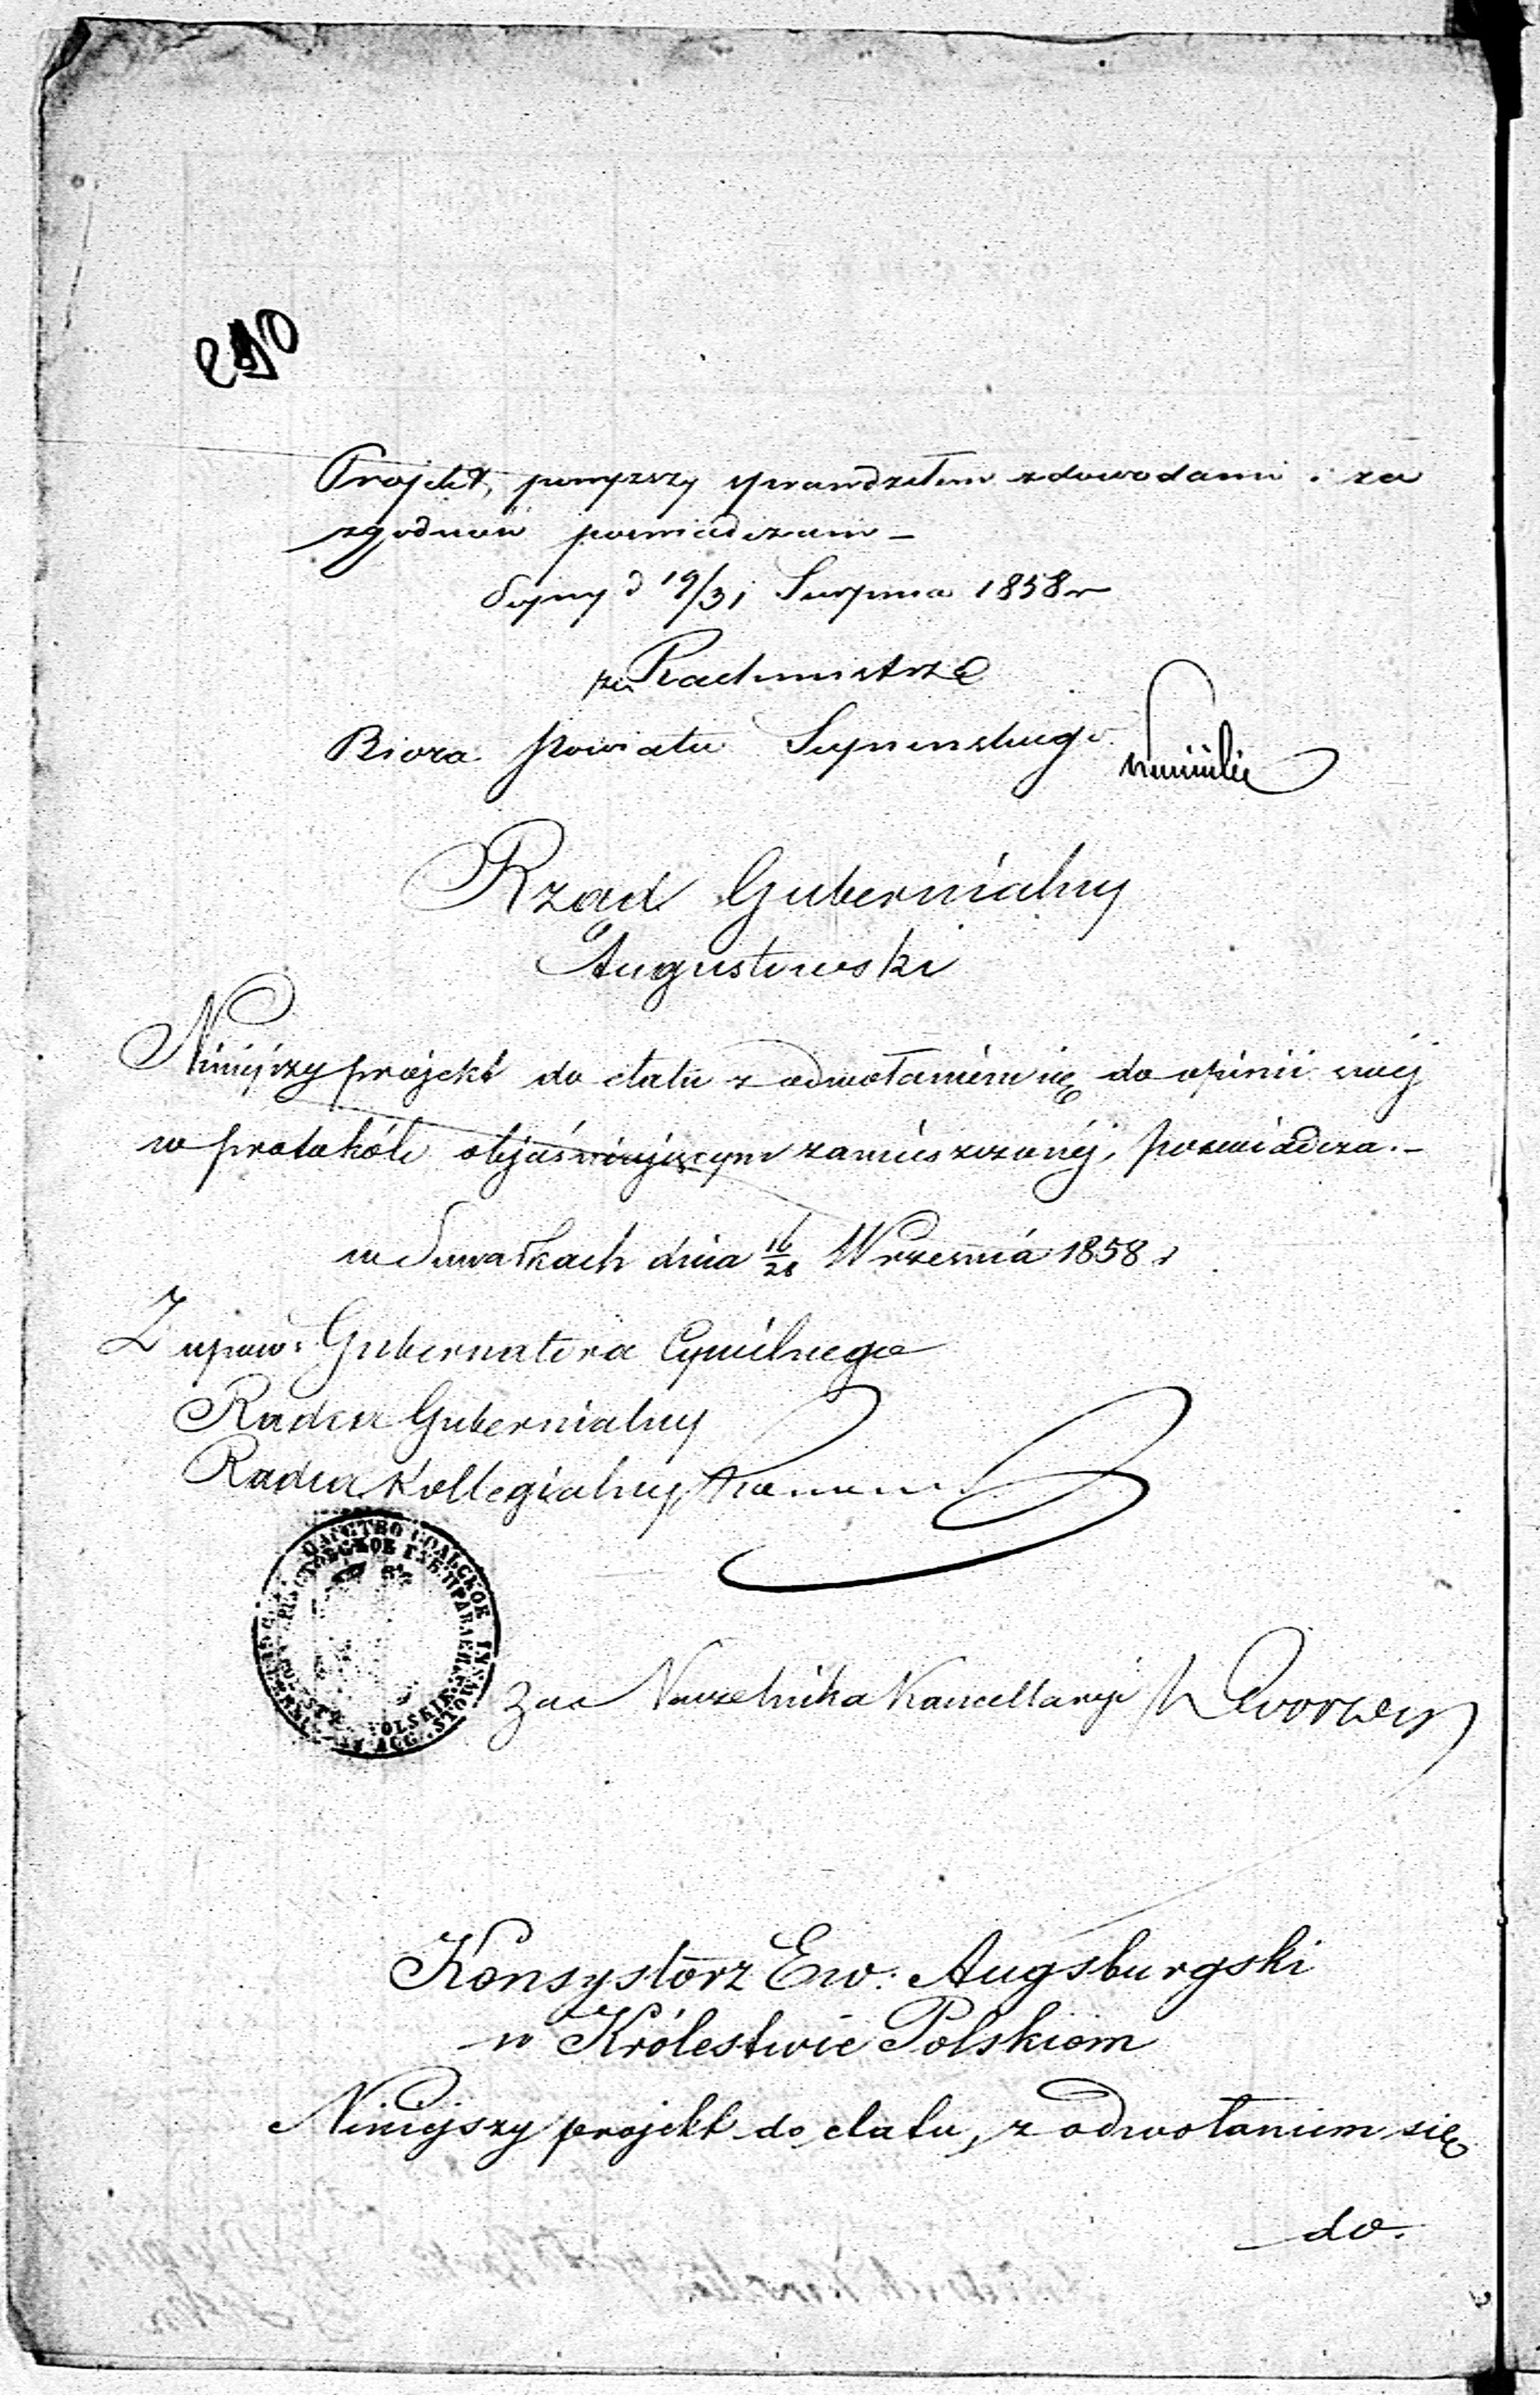 Projekt powyższy sprawdziłem z dowodami i za
zgodność poswiadczam –
Sejny d 19/31 Sierpnia 1858 r
za Rachmistrza
Biora Powiatu Sejnenskiego
Rząd Gubernialny
Augustowski
Niniejszy projekt do etatu z odwołaniem się do opinii swéj
w protokóle objaśniającym zamieszczonéj, poswiadcza. –
w Suwałkach dnia 16/28 Września 1858 r
Z upow: Gubernatora Cywilnego
Radca Gubernialny
Radca Kollegialny
Za Naczelnika Kancellaryi
Konsystorz Ew: Augsburgski
w Królestwie Polskiem
Niniejszy projekt do etatu, z odwołaniem się
do.